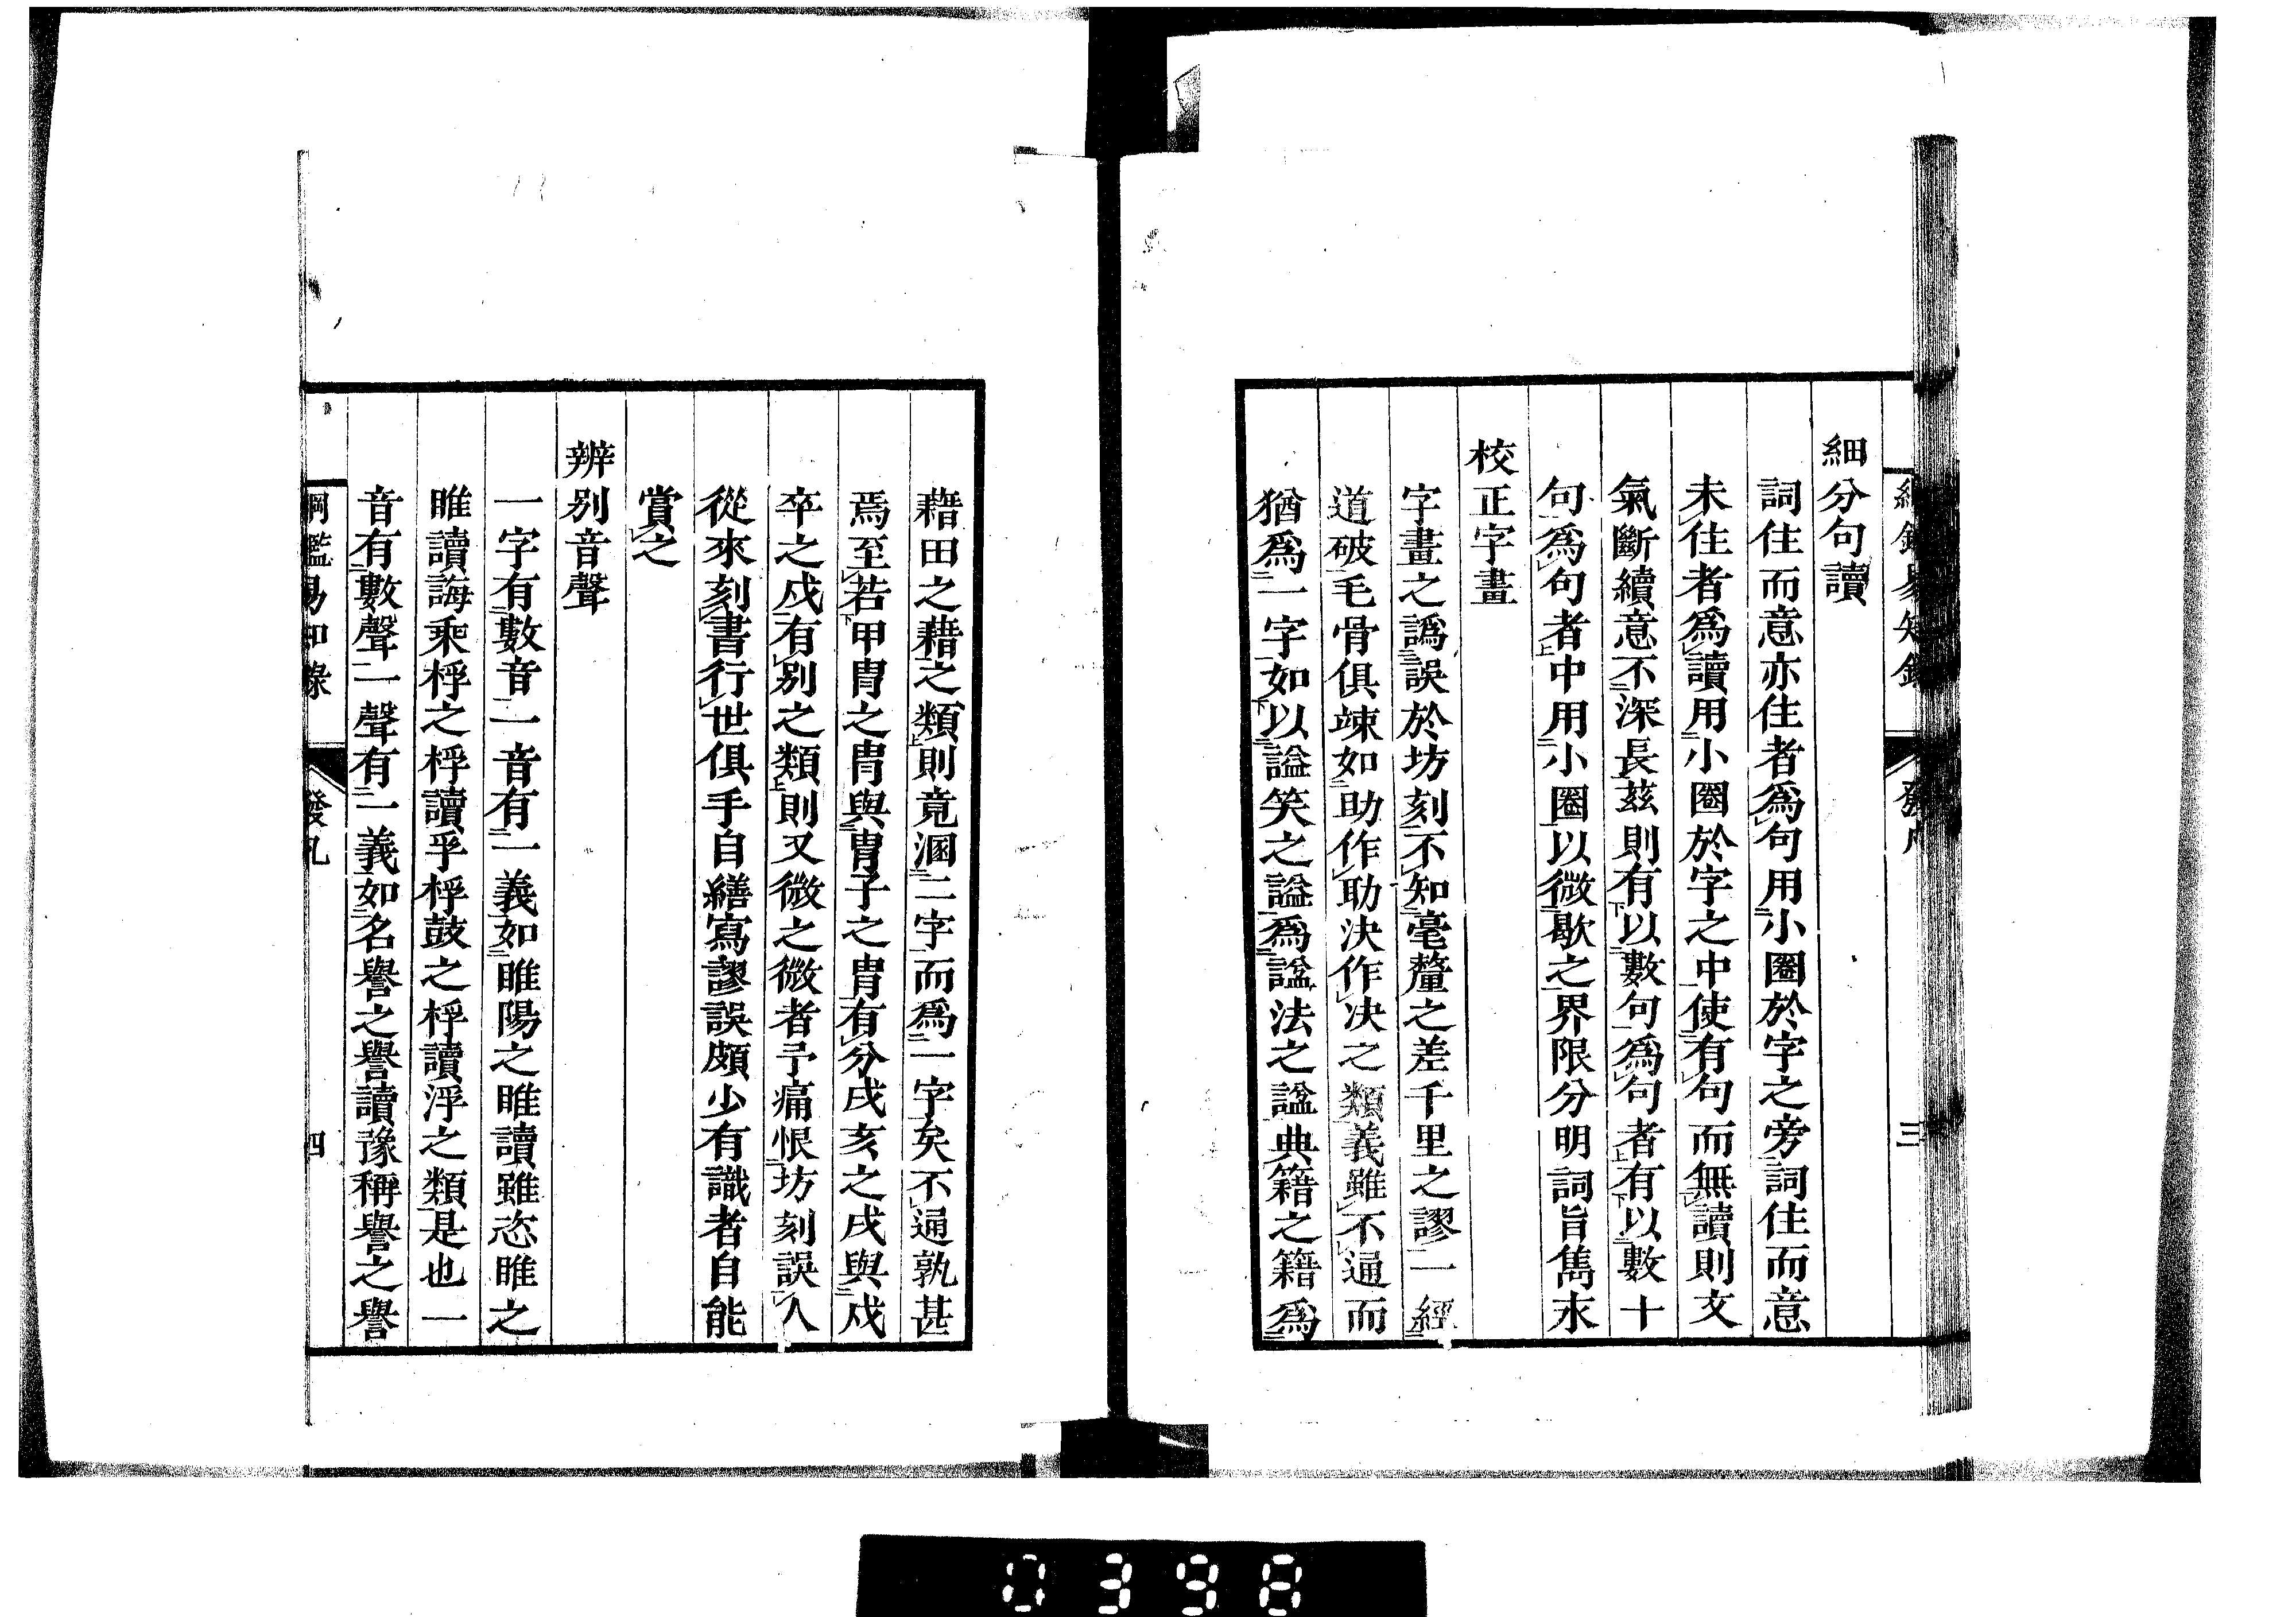 細分句讀
詞住而意亦住者爲句用小圈於字之旁詞住而意
未住者爲讀用小圈於字之中使有句而無讀則文
氣斷續意不深長玆則有以數句爲句者有以數十
句爲句者中用小圈以微歇之界限分明詞旨雋永
校正字畫
字畫之譌誤於坊刻不知毫釐之差千里之謬一經
道破毛骨俱竦如助作助決作决之類義雖不通而
猶爲一字如以謚笑之謚爲諡法之諡典籍之籍爲
藉田之藉之類則竟溷二字而爲一字矣不通孰甚
焉至若甲冑之冑與胄子之胄有分戌亥之戌與戍
卒之戍有别之類則又微之微者予痛恨坊刻誤人
從來刻書行世俱手自繕寫謬誤頗少有識者自能
賞之
辨别音聲
一字有數音一音有一義如睢陽之睢讀雖恣睢之
睢讀誨乘桴之桴讀孚桴鼓之桴讀浮之類是也一
音有數聲一聲有一義如名譽之譽讀豫稱譽之譽
綱鑑易知錄
發凡
四